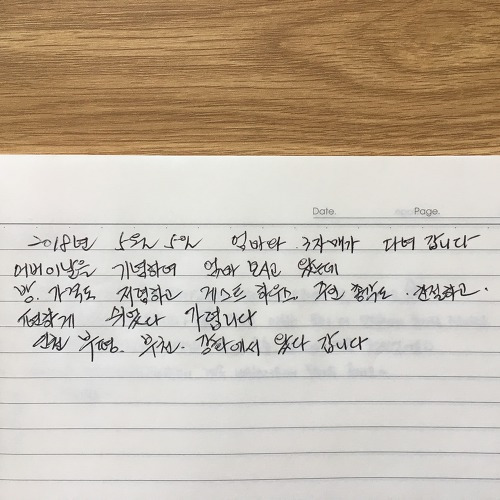 Date. Page.
2018년 5월 5일 엄마와 3자매가 다녀 갑니다
어버이날을 기념하여 엄마 모시고 왔는데
방. 가격도 저렴하고 게스트 하우스. 주인 총각도. 친절하고.
편하게 쉬었다 가렵니다
인천 부평. 부천. 강화에서 왔다 갑니다